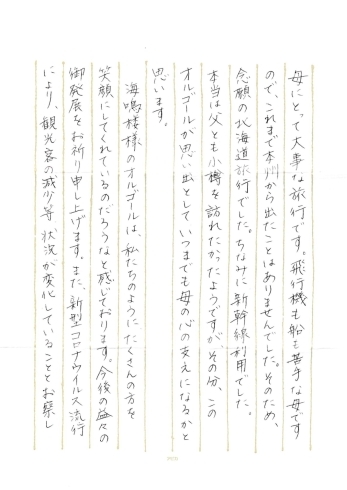 母にとって大事な旅行です。飛行機も船も苦手な母です
ので、これまで本州から出たことはありませんでした。そのため、
念願の北海道旅行でした。ちなみに新幹線利用でした。
本当は父とも小樽を訪れたかったようですが、その分、この
オルゴールが思い出としていつまでも母の心の支えになるかと
思います。
海鳴楼様のオルゴールは、私たちのようにたくさんの方を
笑顔にしてくれているのだろうなと感じております。今後の益々の
御発展をお祈り申し上げます。また、新型コロナウイルス流行
により、観光客の減少等状況が変化していることとお察し